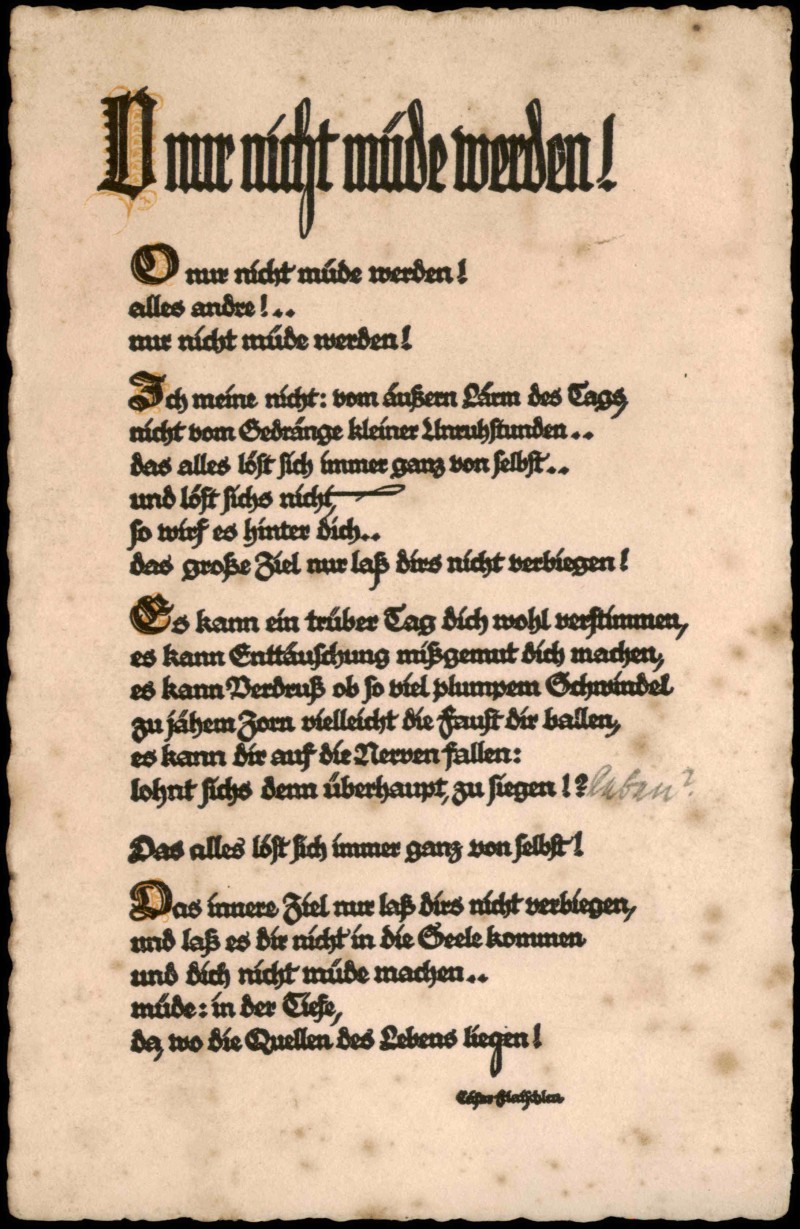 O nur nicht müde werden!
O nur nicht müde werden!
alles andre!..
nur nicht müde werden!
Ich meine nicht: vom äußern Lärm des Tags,
nicht vom Gedränge kleiner Unruhstunden..
das alles löst sich immer ganz von selbst..
und löst sichs nicht,
so wirf es hinter dich..
das große Ziel nur laß dirs nicht verbiegen!
Es kann ein trüber Tag dich wohl verstimmen,
es kann Enttäuschung mißgemut dich machen,
es kann Verdruß ob so viel plumpem Schwindel
zu jähem Zorn vielleicht die Faust dir ballen,
es kann dir auf die Nerven fallen:
lohnt sichs denn überhaupt, zu siegen!? leben?
Das alles löst sich immer ganz von selbst!
Das innere Ziel nur laß dirs nicht verbiegen,
und laß es dir nicht in die Seele kommen
und dich nicht müde machen..
müde: in der Tiefe,
da, wo die Quellen des Lebens liegen!
Cäsar Flaischlen